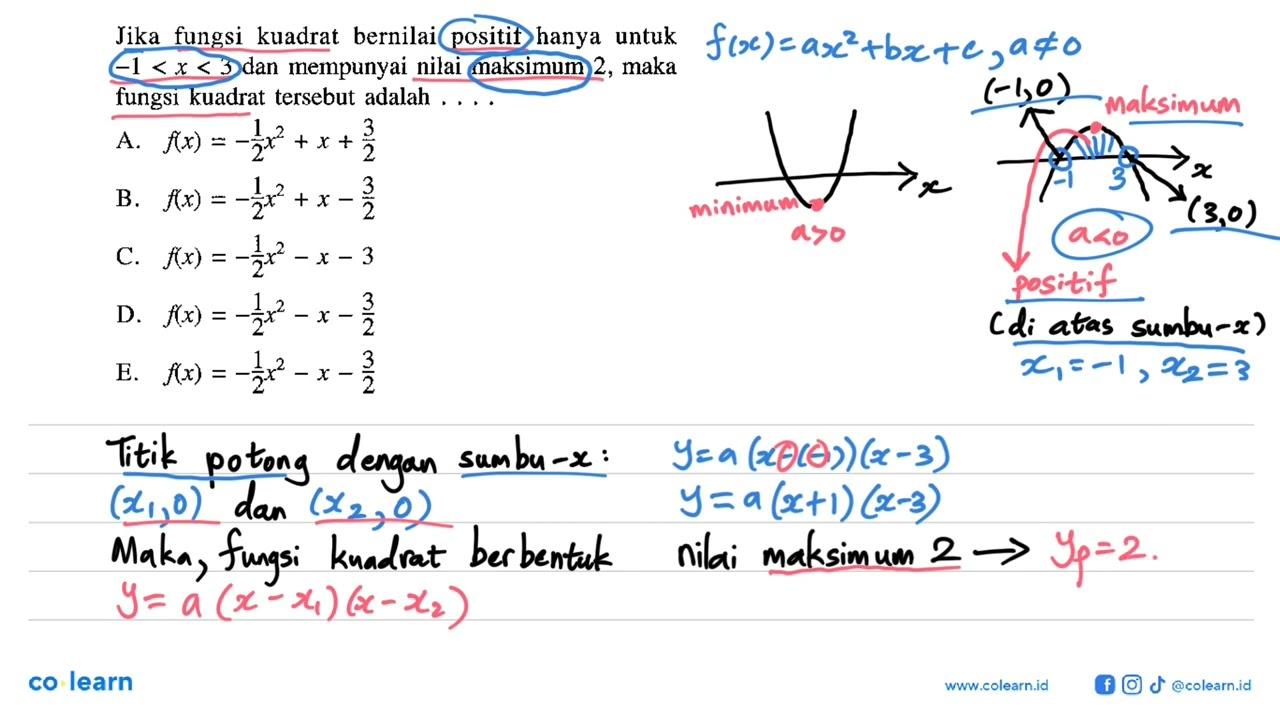 Jika fungsi kuadrat bernilai positif hanya untuk
-1 < x < 3 dan mempunyai nilai maksimum 2, maka
fungsi kuadrat tersebut adalah . . . .
A. f(x) = -1/2x² + x + 3/2
B. f(x) = -1/2x² + x - 3/2
C. f(x) = -1/2x² - x - 3
D. f(x) = -1/2x² - x - 3/2
E. f(x) = -1/2x² - x - 3/2
f(x) = ax² + bx + c, a ≠ 0
x
minimum
a>0
(-1,0)
maksimum
x
-1 3
(3,0)
a<0
positif
(di atas sumbu-x)
x₁ = -1, x₂ = 3
Titik potong dengan sumbu-x :
(x₁,0) dan (x₂,0)
Maka, fungsi kuadrat berbentuk
y = a (x - x₁) (x - x₂)
y = a (x-(-1))(x-3)
y = a (x+1) (x-3)
nilai maksimum 2 → yₚ = 2.
co learn
www.colearn.id
@colearn.id